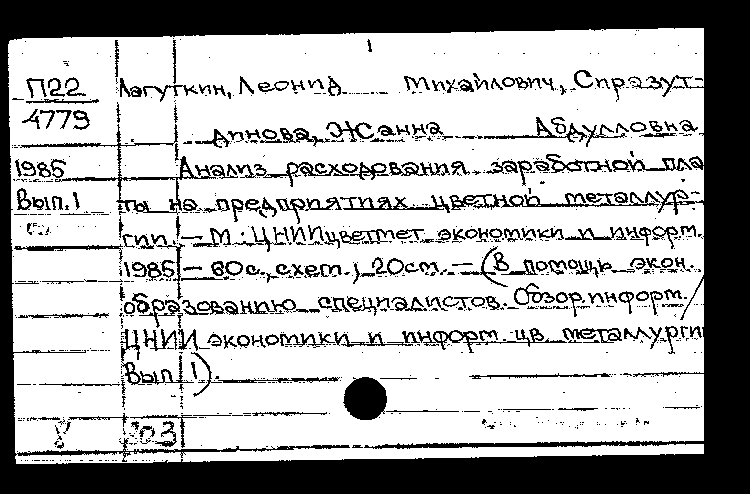 П22 Лагуткин, Леонид Михайлович, Спразут-
4779 динова, Жанна Абдулловна
1985 Анализ расходования заработной пла
Вып.1 ты на предприятиях цветной металлур-
гии. — М.: ЦНИИцветмет экономики и информ.
1985 — 60с., схем.; 20см. — (В помощь экон.
образованию специалистов. Обзор. информ. /
ЦНИИ экономики и информ. цв. металлургии
Вып. 1).
8 203